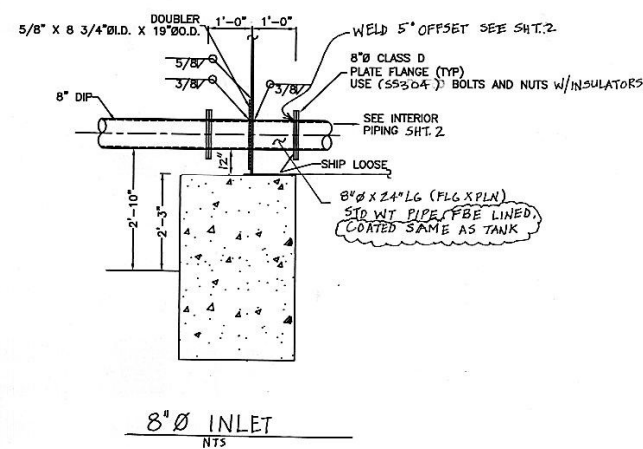 DOUBLER
5/8" X 8 3/4"ØI.D. X 19"ØO.D.
1'-0" 1'-0"
WELD 5° OFFSET SEE SHT.2
5/8
3/8
3/8
8"Ø CLASS D
PLATE FLANGE (TYP)
USE (SS304) BOLTS AND NUTS W/INSULATORS
8" DIP
SEE INTERIOR
PIPING SHT. 2
12"
SHIP LOOSE
2'-10"
2'-3"
8"Ø X 24" LG (FLG X PLN)
STD WT PIPE, FBE LINED,
COATED SAME AS TANK
8"Ø INLET
NTS